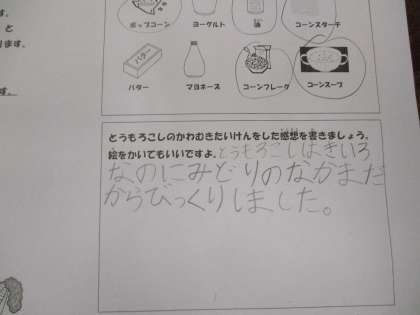 す。
と
ります。
す。
ポップコーン
ヨーグルト
油
コーンスターチ
バター
バター
マヨネーズ
コーンフレーク
コーンスープ
とうもろこしのかわむきたいけんをした感想を書きましょう。
絵をかいてもいいですよ。とうもろこしはきいろ
なのにみどりのなかまだ
からびっくりしました。